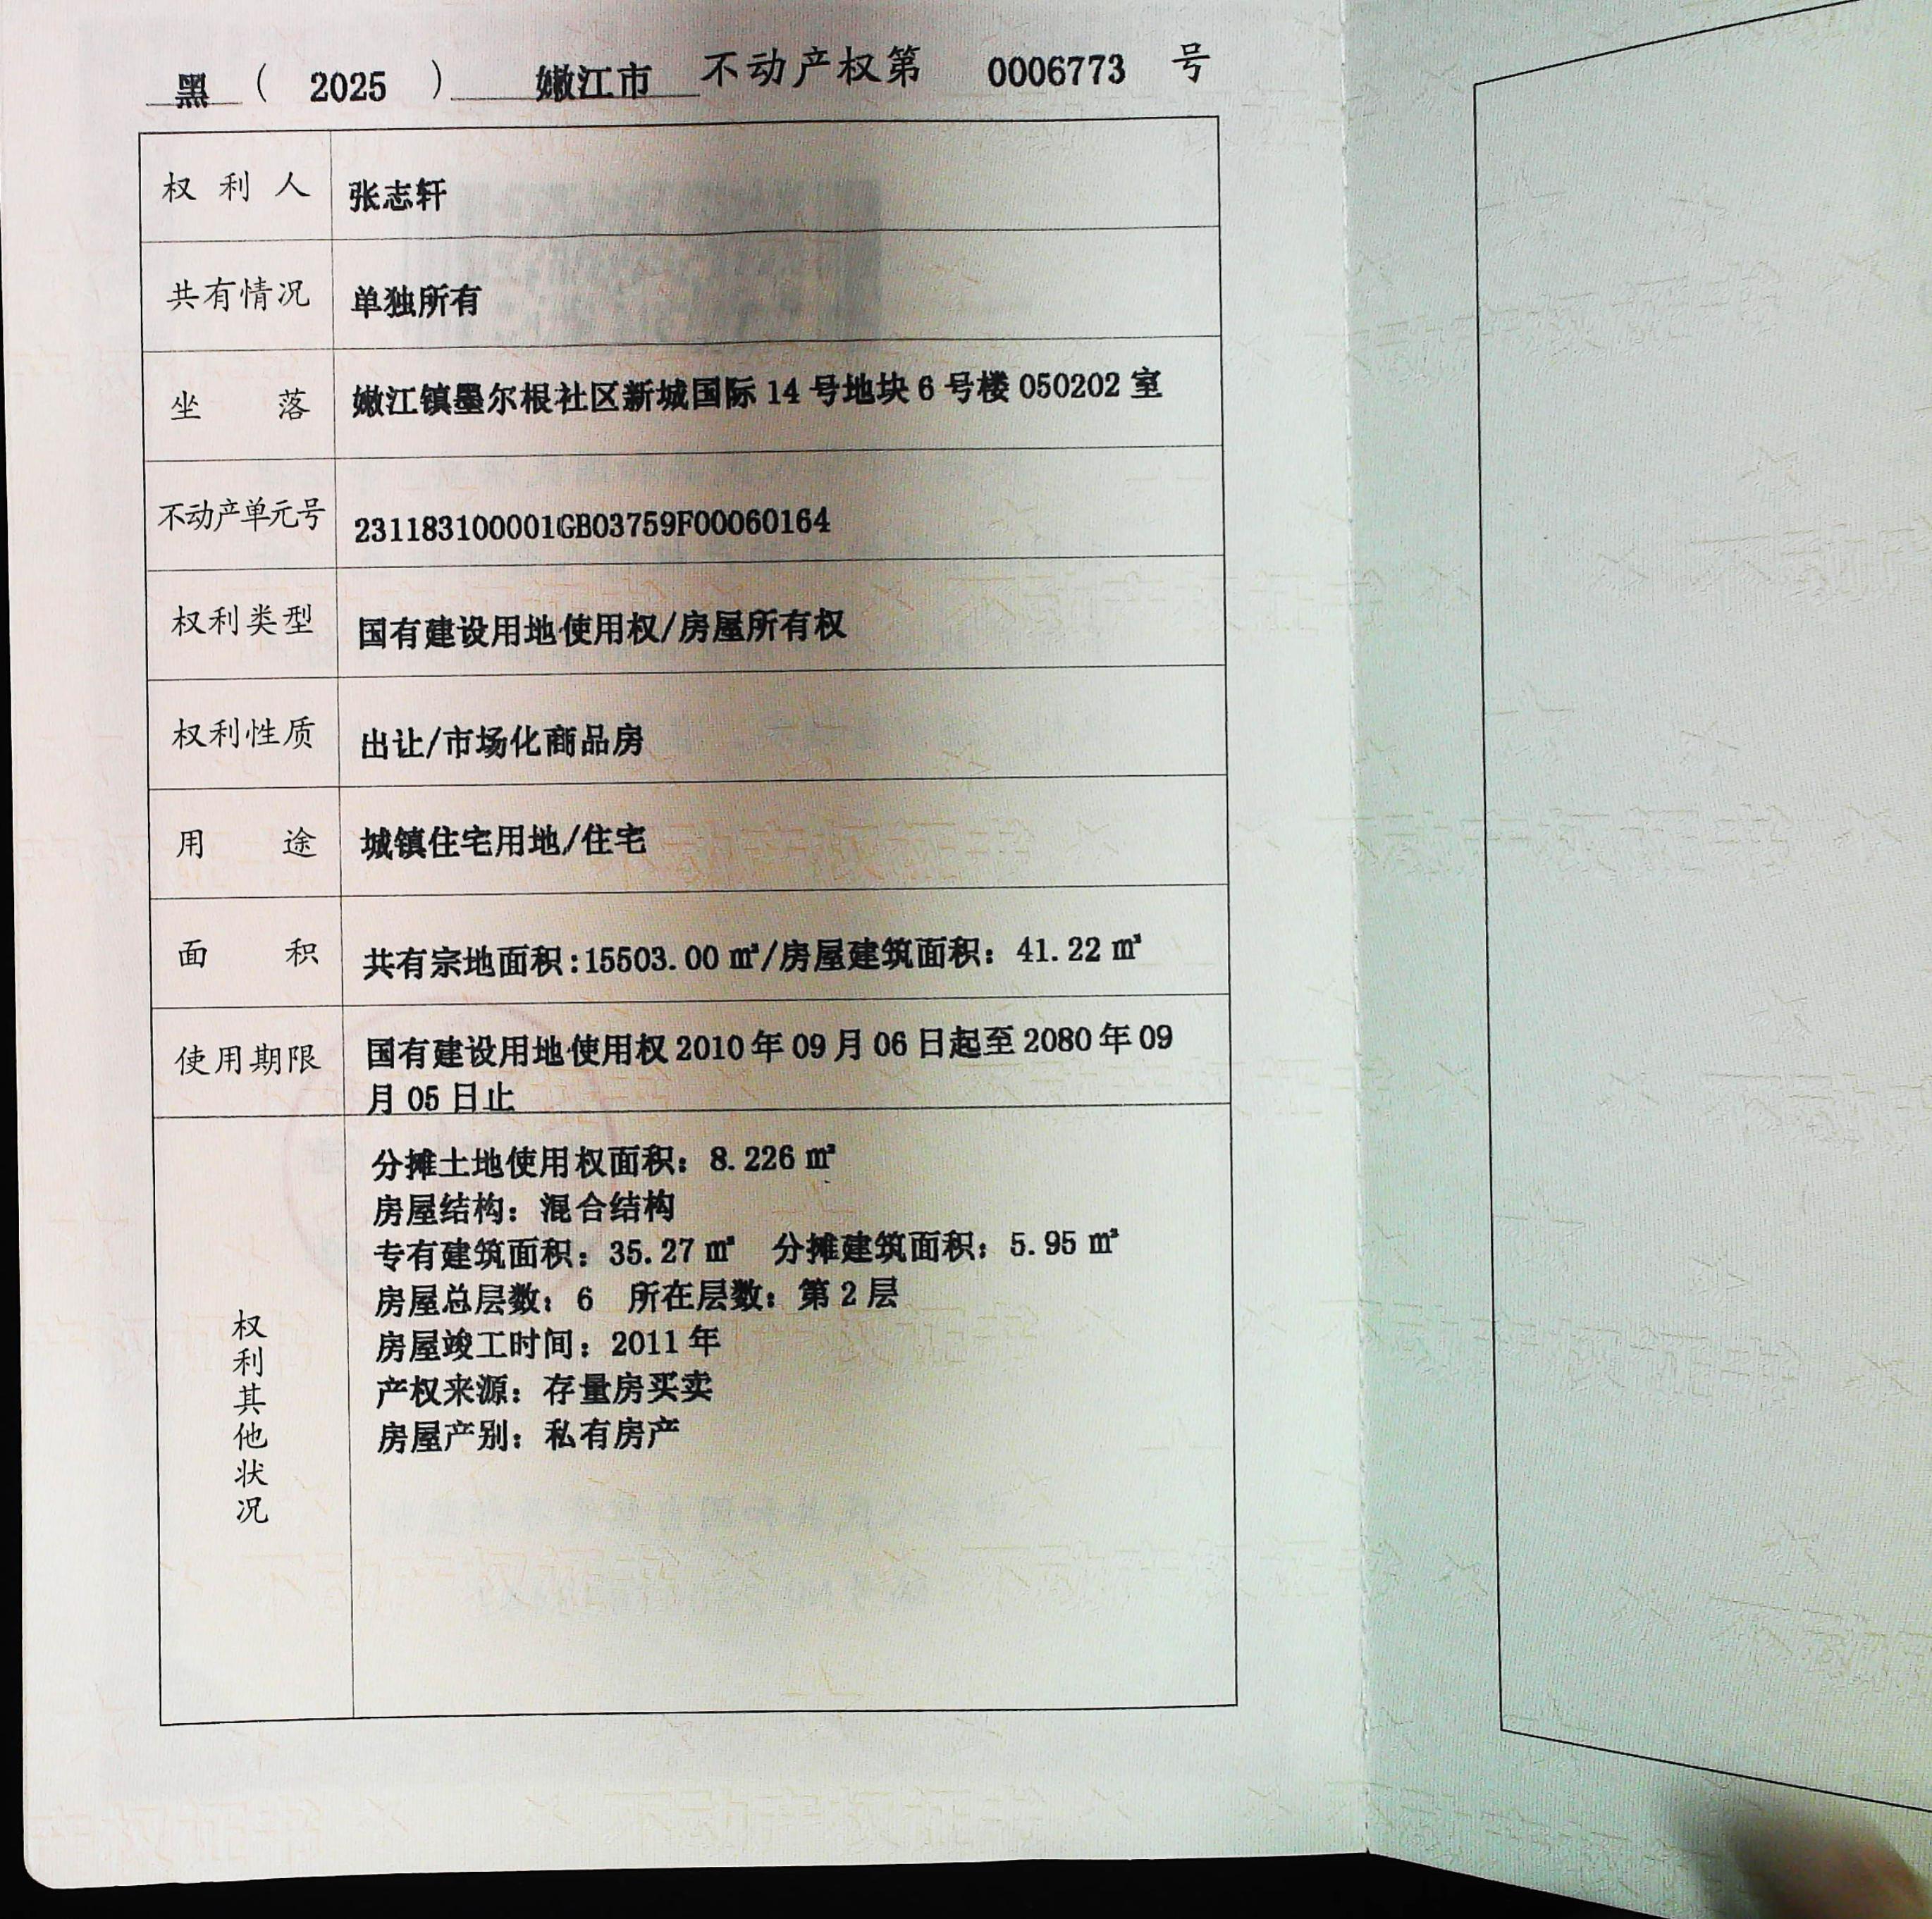 黑 ( 2025 ) 嫩江市 不动产权第 0006773 号
权利人 张志轩
共有情况 单独所有
坐落 嫩江镇墨尔根社区新城国际 14 号地块 6 号楼 050202 室
不动产单元号 231183100001GB03759F00060164
权利类型 国有建设用地使用权/房屋所有权
权利性质 出让/市场化商品房
用途 城镇住宅用地/住宅
面积 共有宗地面积:15503.00 ㎡/房屋建筑面积: 41.22 ㎡
使用期限 国有建设用地使用权 2010 年 09 月 06 日起至 2080 年 09
月 05 日止
权利其他状况
分摊土地使用权面积: 8.226 ㎡
房屋结构: 混合结构
专有建筑面积: 35.27 ㎡ 分摊建筑面积: 5.95 ㎡
房屋总层数: 6 所在层数: 第 2 层
房屋竣工时间: 2011 年
产权来源: 存量房买卖
房屋产别: 私有房产